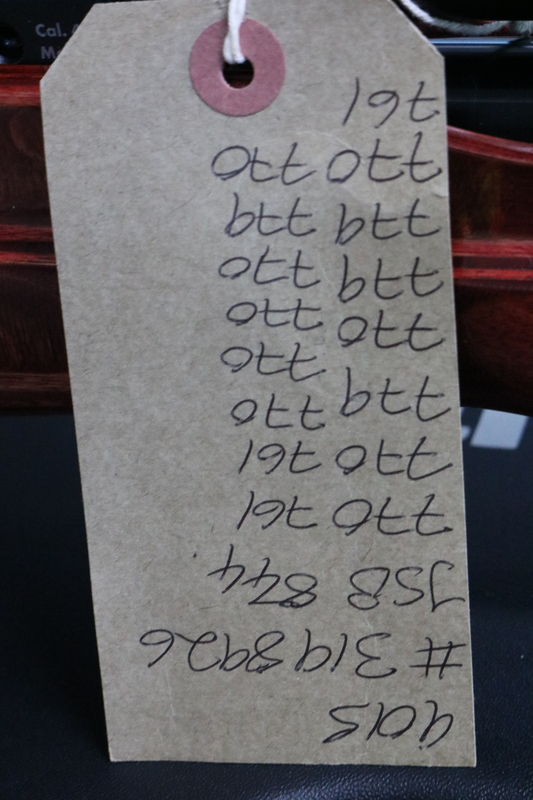 9015
# 3198926
JSB 844
770 761
770 761
779 770
770
770 770
779 770
779 779
770 770
761
Cal.